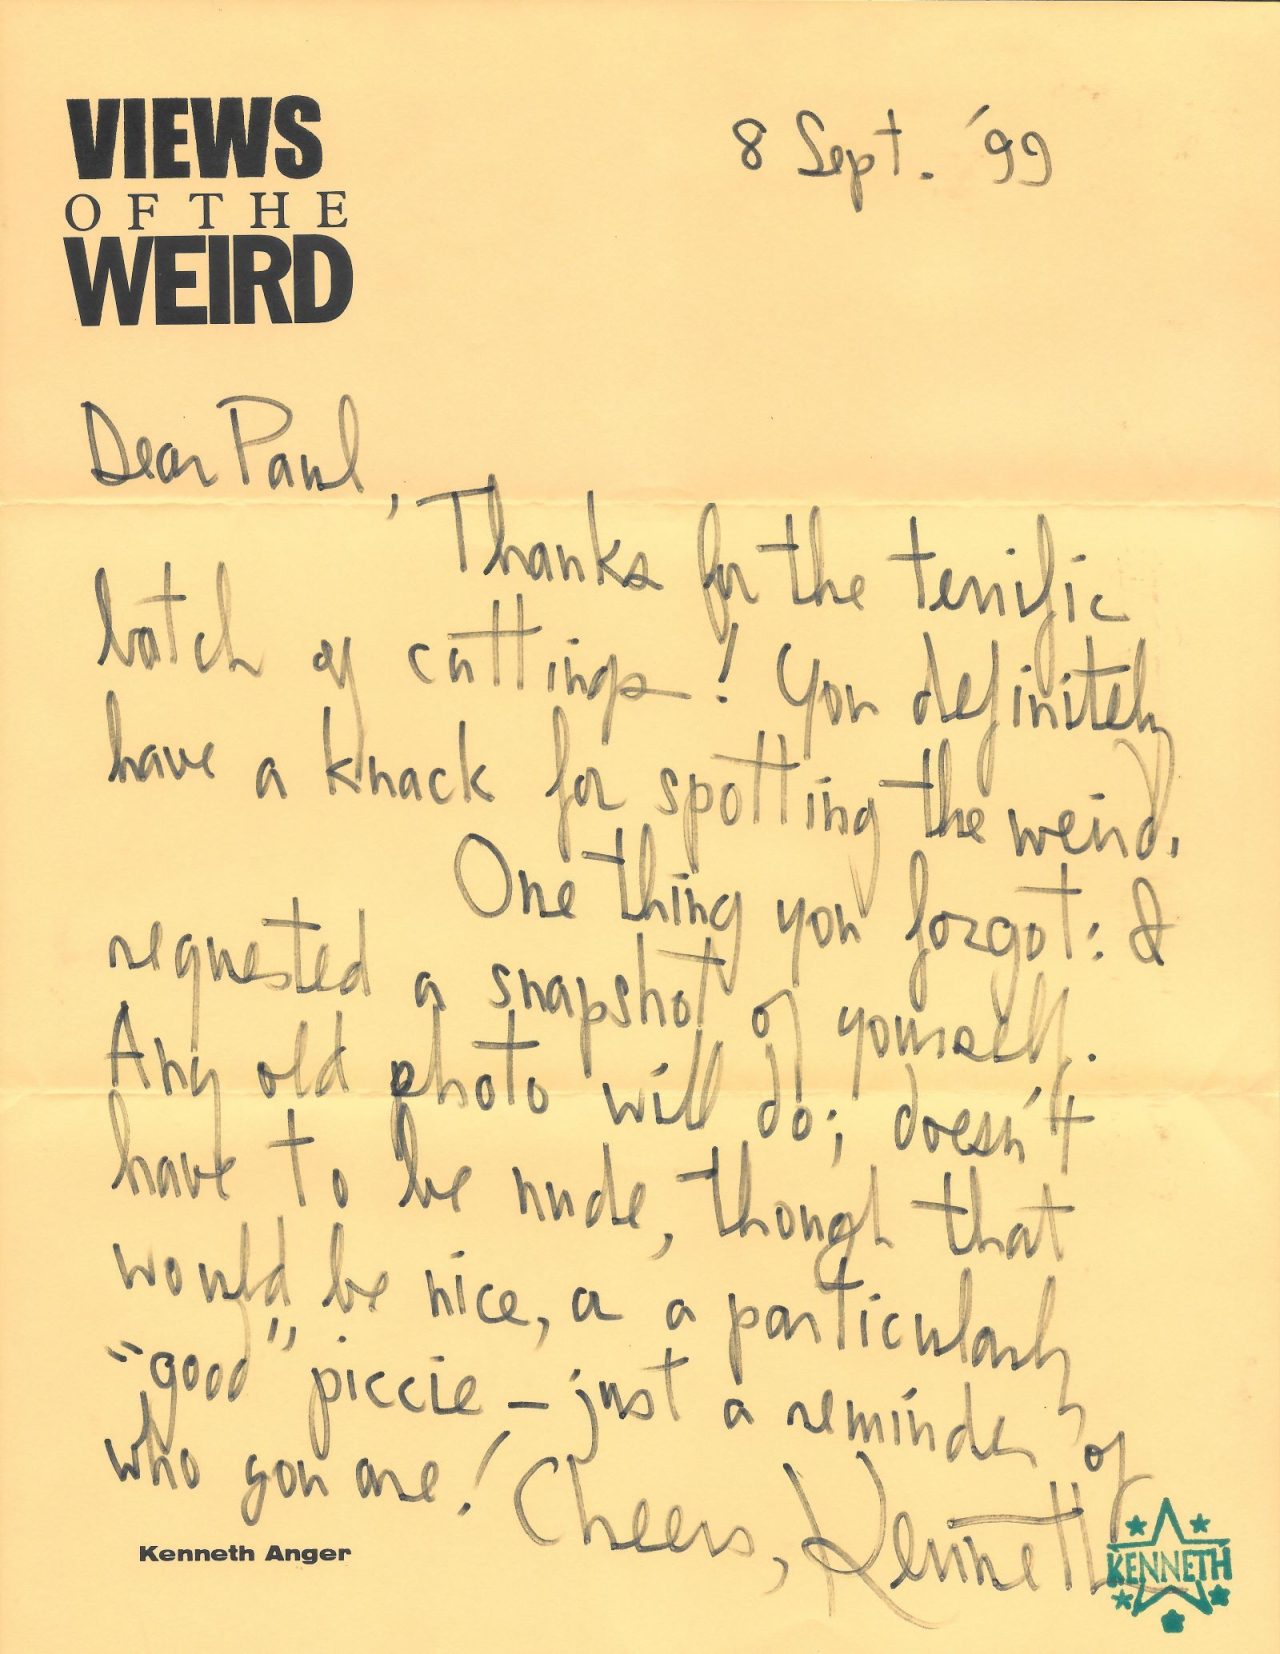 VIEWS
OF THE
WEIRD
8 Sept. '99
Dear Paul,
Thanks for the terrific
batch of cuttings! You definitely
have a knack for spotting the weird.
One thing you forgot: I
requested a snapshot of yourself.
Any old photo will do; doesn't
have to be nude, though that
would be nice, or a particularly
"good" piccie – just a reminder of
who you are! Cheers, Kenneth
Kenneth Anger
KENNETH